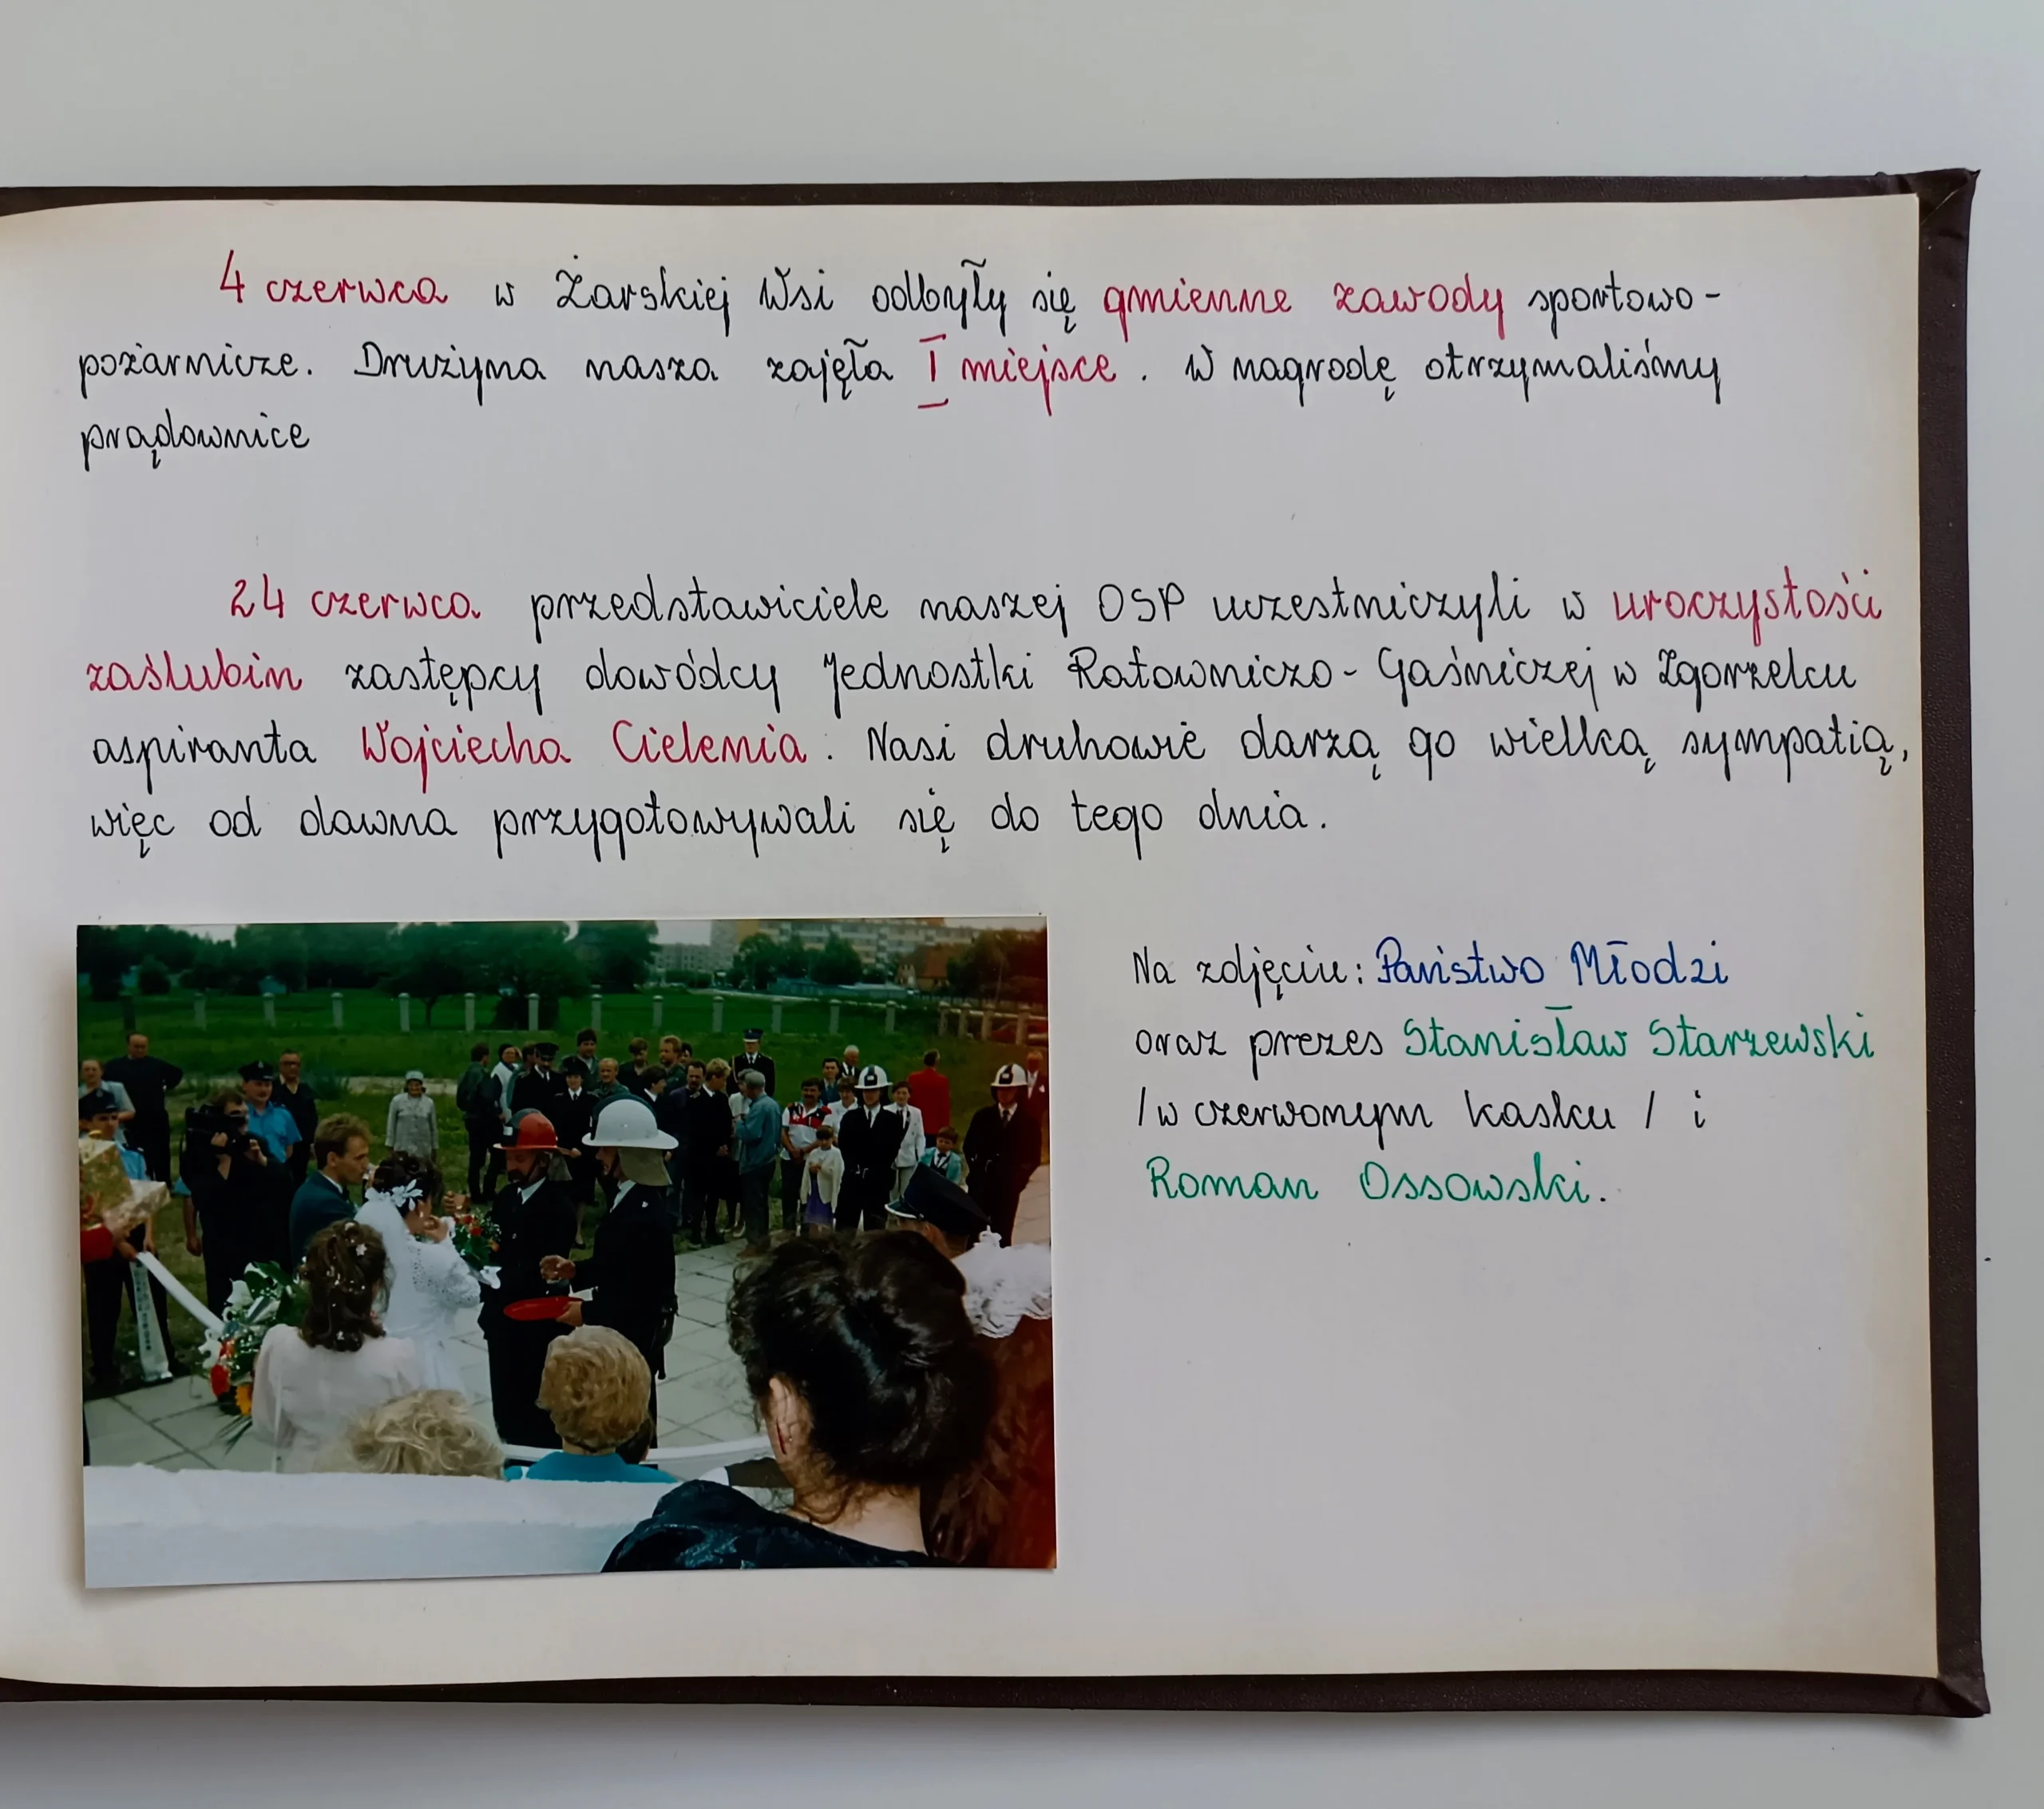 4 czerwca w Żarskiej Wsi odbyły się gmienne zawody sportowo-
pożarnicze. Drużyna nasza zajęła I miejsce. W nagrodę otrzymaliśmy
prądownice
24 czerwca przedstawiciele naszej OSP uczestniczyli w uroczystości
zaślubin zastępcy dowódcy Jednostki Ratowniczo-Gaśniczej w Zgorzelcu
aspiranta Wojciecha Cielemia. Nasi druhowie darzą go wielką sympatią,
więc od dawna przygotowywali się do tego dnia.
Na zdjęciu: Państwo Młodzi
oraz prezes Stanisław Starzewski
/w czerwonym kasku/ i
Roman Ossowski.